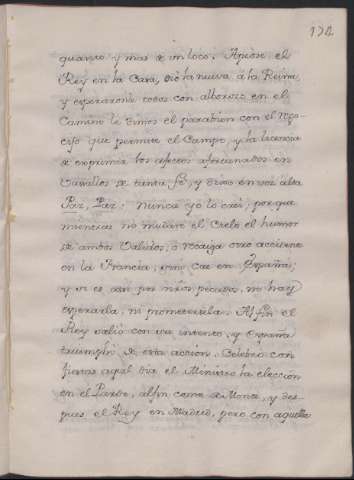 132
quanto y mas de un loco. Apeose el
Rey en la Casa, dió la nueva á la Reina,
y esperaronle todos con alborozo en el
Camino le dimos el parabien con el rego-
cijo que permite el Campo, y la licencia
de exprimir los afectos aficionados en
Cavallos de tanta fé, y dixo en voz alta
Paz, Paz: Nunca yo lo crei; porque
mientras no mudare el Cielo el humor
de ambos Validos, ó recaiga otro accidente
en la Francia, como cae en España;
y si es assi por nros pecados, no hay
esperarla, ni prometersela. Al fin el
Rey salió con su intento, y España
triumphó de esta accion. Celebró con
fiestas aquel dia el Ministro la eleccion
en el Pardo, al fin como de Monte, y des-
pues el Rey en Madrid, pero con aquella